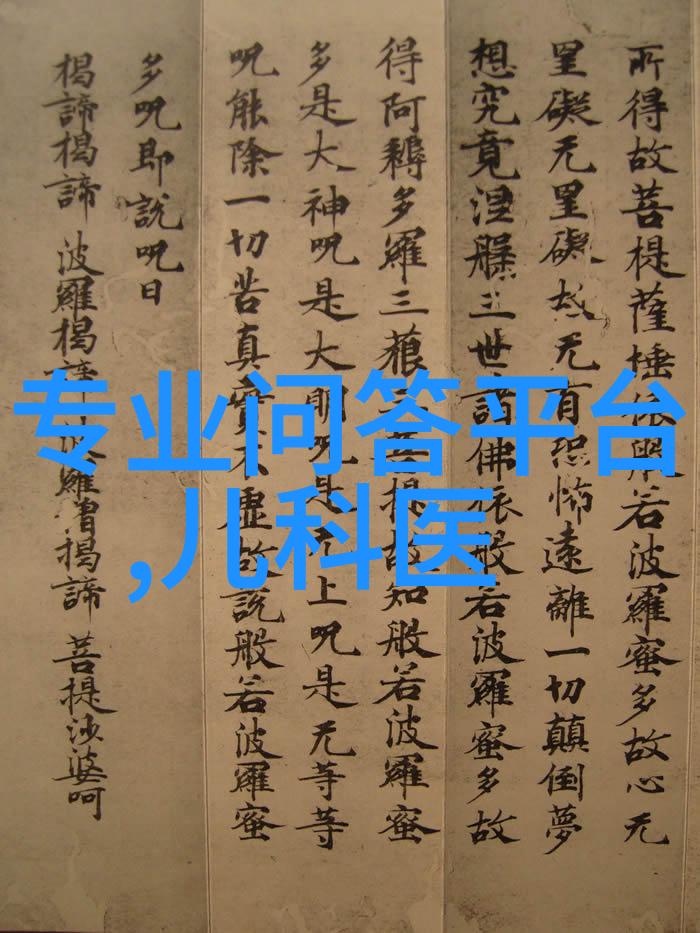 所得故菩提薩埵依般若波羅蜜多故心无
罣礙无罣礙故无有恐怖遠離一切顛倒夢
想究竟涅槃三世諸佛依般若波羅蜜多故
得阿耨多羅三藐三菩提故知般若波羅蜜
多是大神呪是大明呪是无上呪是无等等
呪能除一切苦真實不虛故說般若波羅蜜
多呪即說呪曰
揭諦揭諦 波羅揭諦 波羅僧揭諦 菩提沙婆呵
专业问答平台
,儿科医